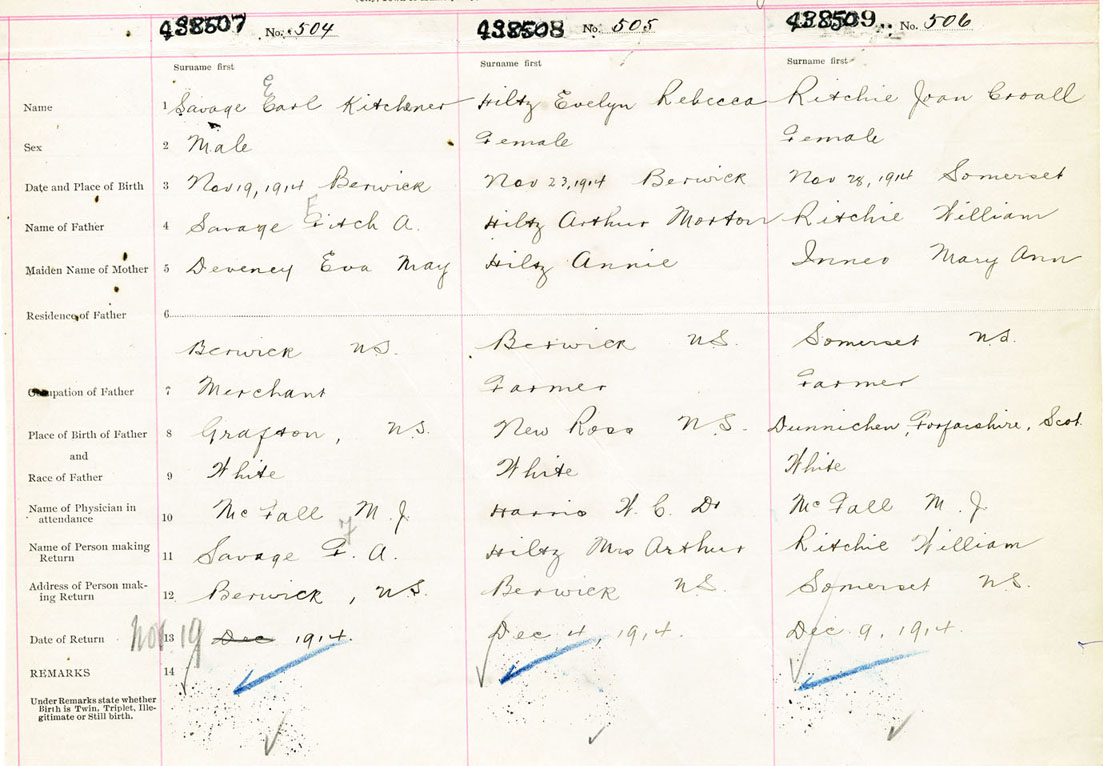 438507 No. 504 438508 No. 505 438509 No. 506
Surname first Surname first Surname first
Name 1 Savage Earl Kitchener Hiltz Evelyn Rebecca Ritchie Joan Croall
Sex 2 Male Female Female
Date and Place of Birth 3 Nov 19, 1914 Berwick Nov 23, 1914 Berwick Nov 28, 1914 Somerset
Name of Father 4 Savage Fitch A. Hiltz Arthur Morton Ritchie William
Maiden Name of Mother 5 Deveney Eva May Hiltz Annie Innes Mary Ann
Residence of Father 6
Berwick NS. Berwick NS. Somerset NS.
Occupation of Father 7 Merchant Farmer Farmer
Place of Birth of Father 8 Grafton, NS. New Ross NS. Dunnichen, Forfarshire, Scot.
and
Race of Father 9 White White White
Name of Physician in
attendance 10 McFall M. J. Harris W. C. Dr McFall M. J.
Name of Person making
Return 11 Savage F. A. Hiltz Mrs Arthur Ritchie William
Address of Person mak-
ing Return 12 Berwick, NS. Berwick NS. Somerset NS.
Date of Return Nov 19 13 Dec 1914. Dec 4, 1914. Dec 9, 1914.
REMARKS 14
Under Remarks state whether
Birth is Twin, Triplet, Ille-
gitimate or Still birth.